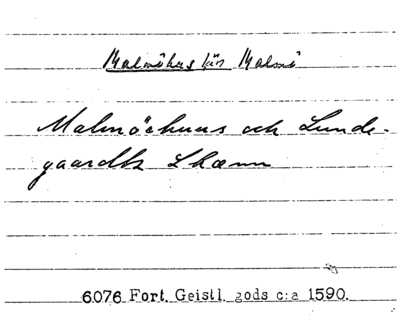 Malmöhus län Malmö
Malmöehuus och Lunde-
gaardtz Lhænn
6076 Fort. Geistl. gods c:a 1590.